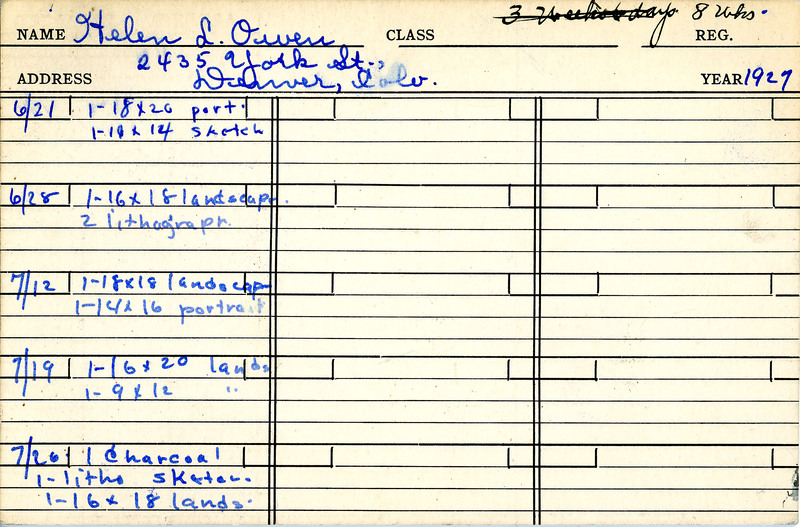 NAME Helen L. Owen CLASS 3 Weeks 6 days 8 wks. REG.
2435 York St.,
ADDRESS Denver, Colo. YEAR 1927
6/21 1-18x20 port.
1-18x14 sketch
6/28 1-16x18 landscap.
2 lithograph.
7/12 1-18x18 landscap
1-14x16 portrait
7/19 1-16x20 lands
1-9x12 "
7/26 1 Charcoal
1-litho sketch.
1-16x18 lands.